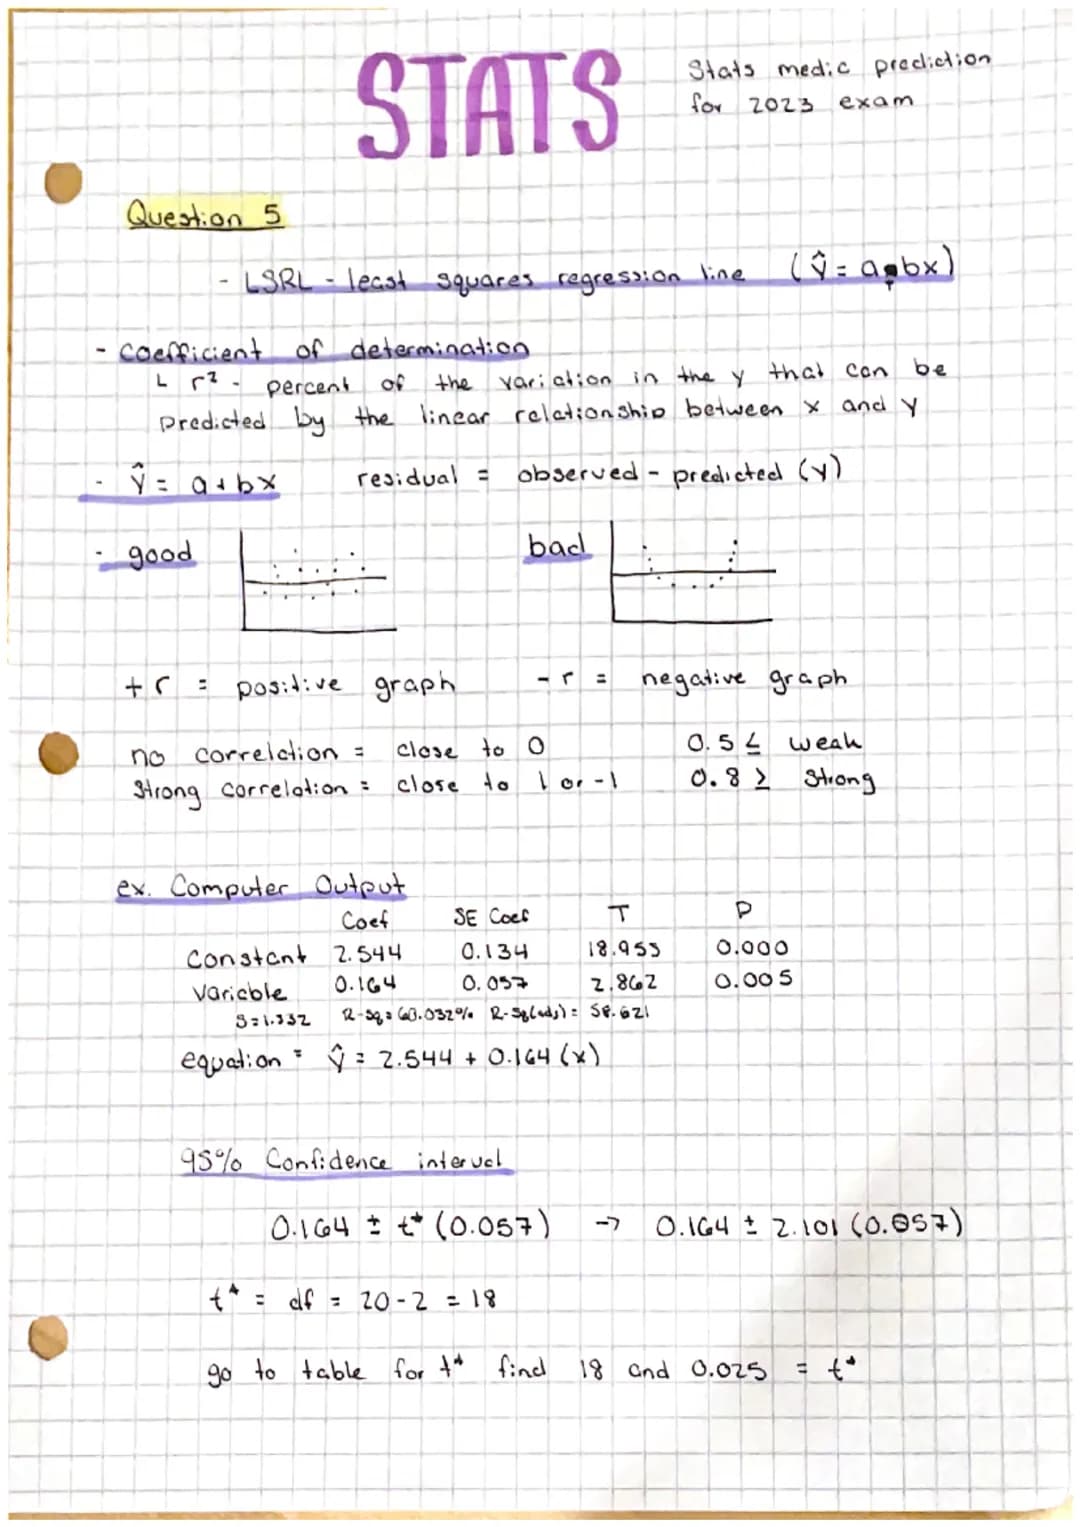 STATS
Stats medic prediction
for 2023 exam
Question 5
- LSRL - least squares regression line (ŷ = a+bx)
- Coefficient of determination
└ r² - percent of the variation in the y that can be
predicted by the linear relationship between x and y
- ŷ = a + bx residual = observed - predicted (y)
- good bad
+ r = positive graph - r = negative graph
no correlation = close to 0 0.5 ≤ weak
Strong correlation = close to 1 or -1 0.8 ≥ Strong
ex. Computer Output
Coef SE Coef T P
Constant 2.544 0.134 18.955 0.000
Variable 0.164 0.057 2.862 0.005
S=1.332 R-sq = 60.032% R-Sq(adj) = 58.621
equation = ŷ = 2.544 + 0.164 (x)
95% Confidence interval
0.164 ± t* (0.057) → 0.164 ± 2.101 (0.057)
t* = df = 20 - 2 = 18
go to table for t* find 18 and 0.025 = t*